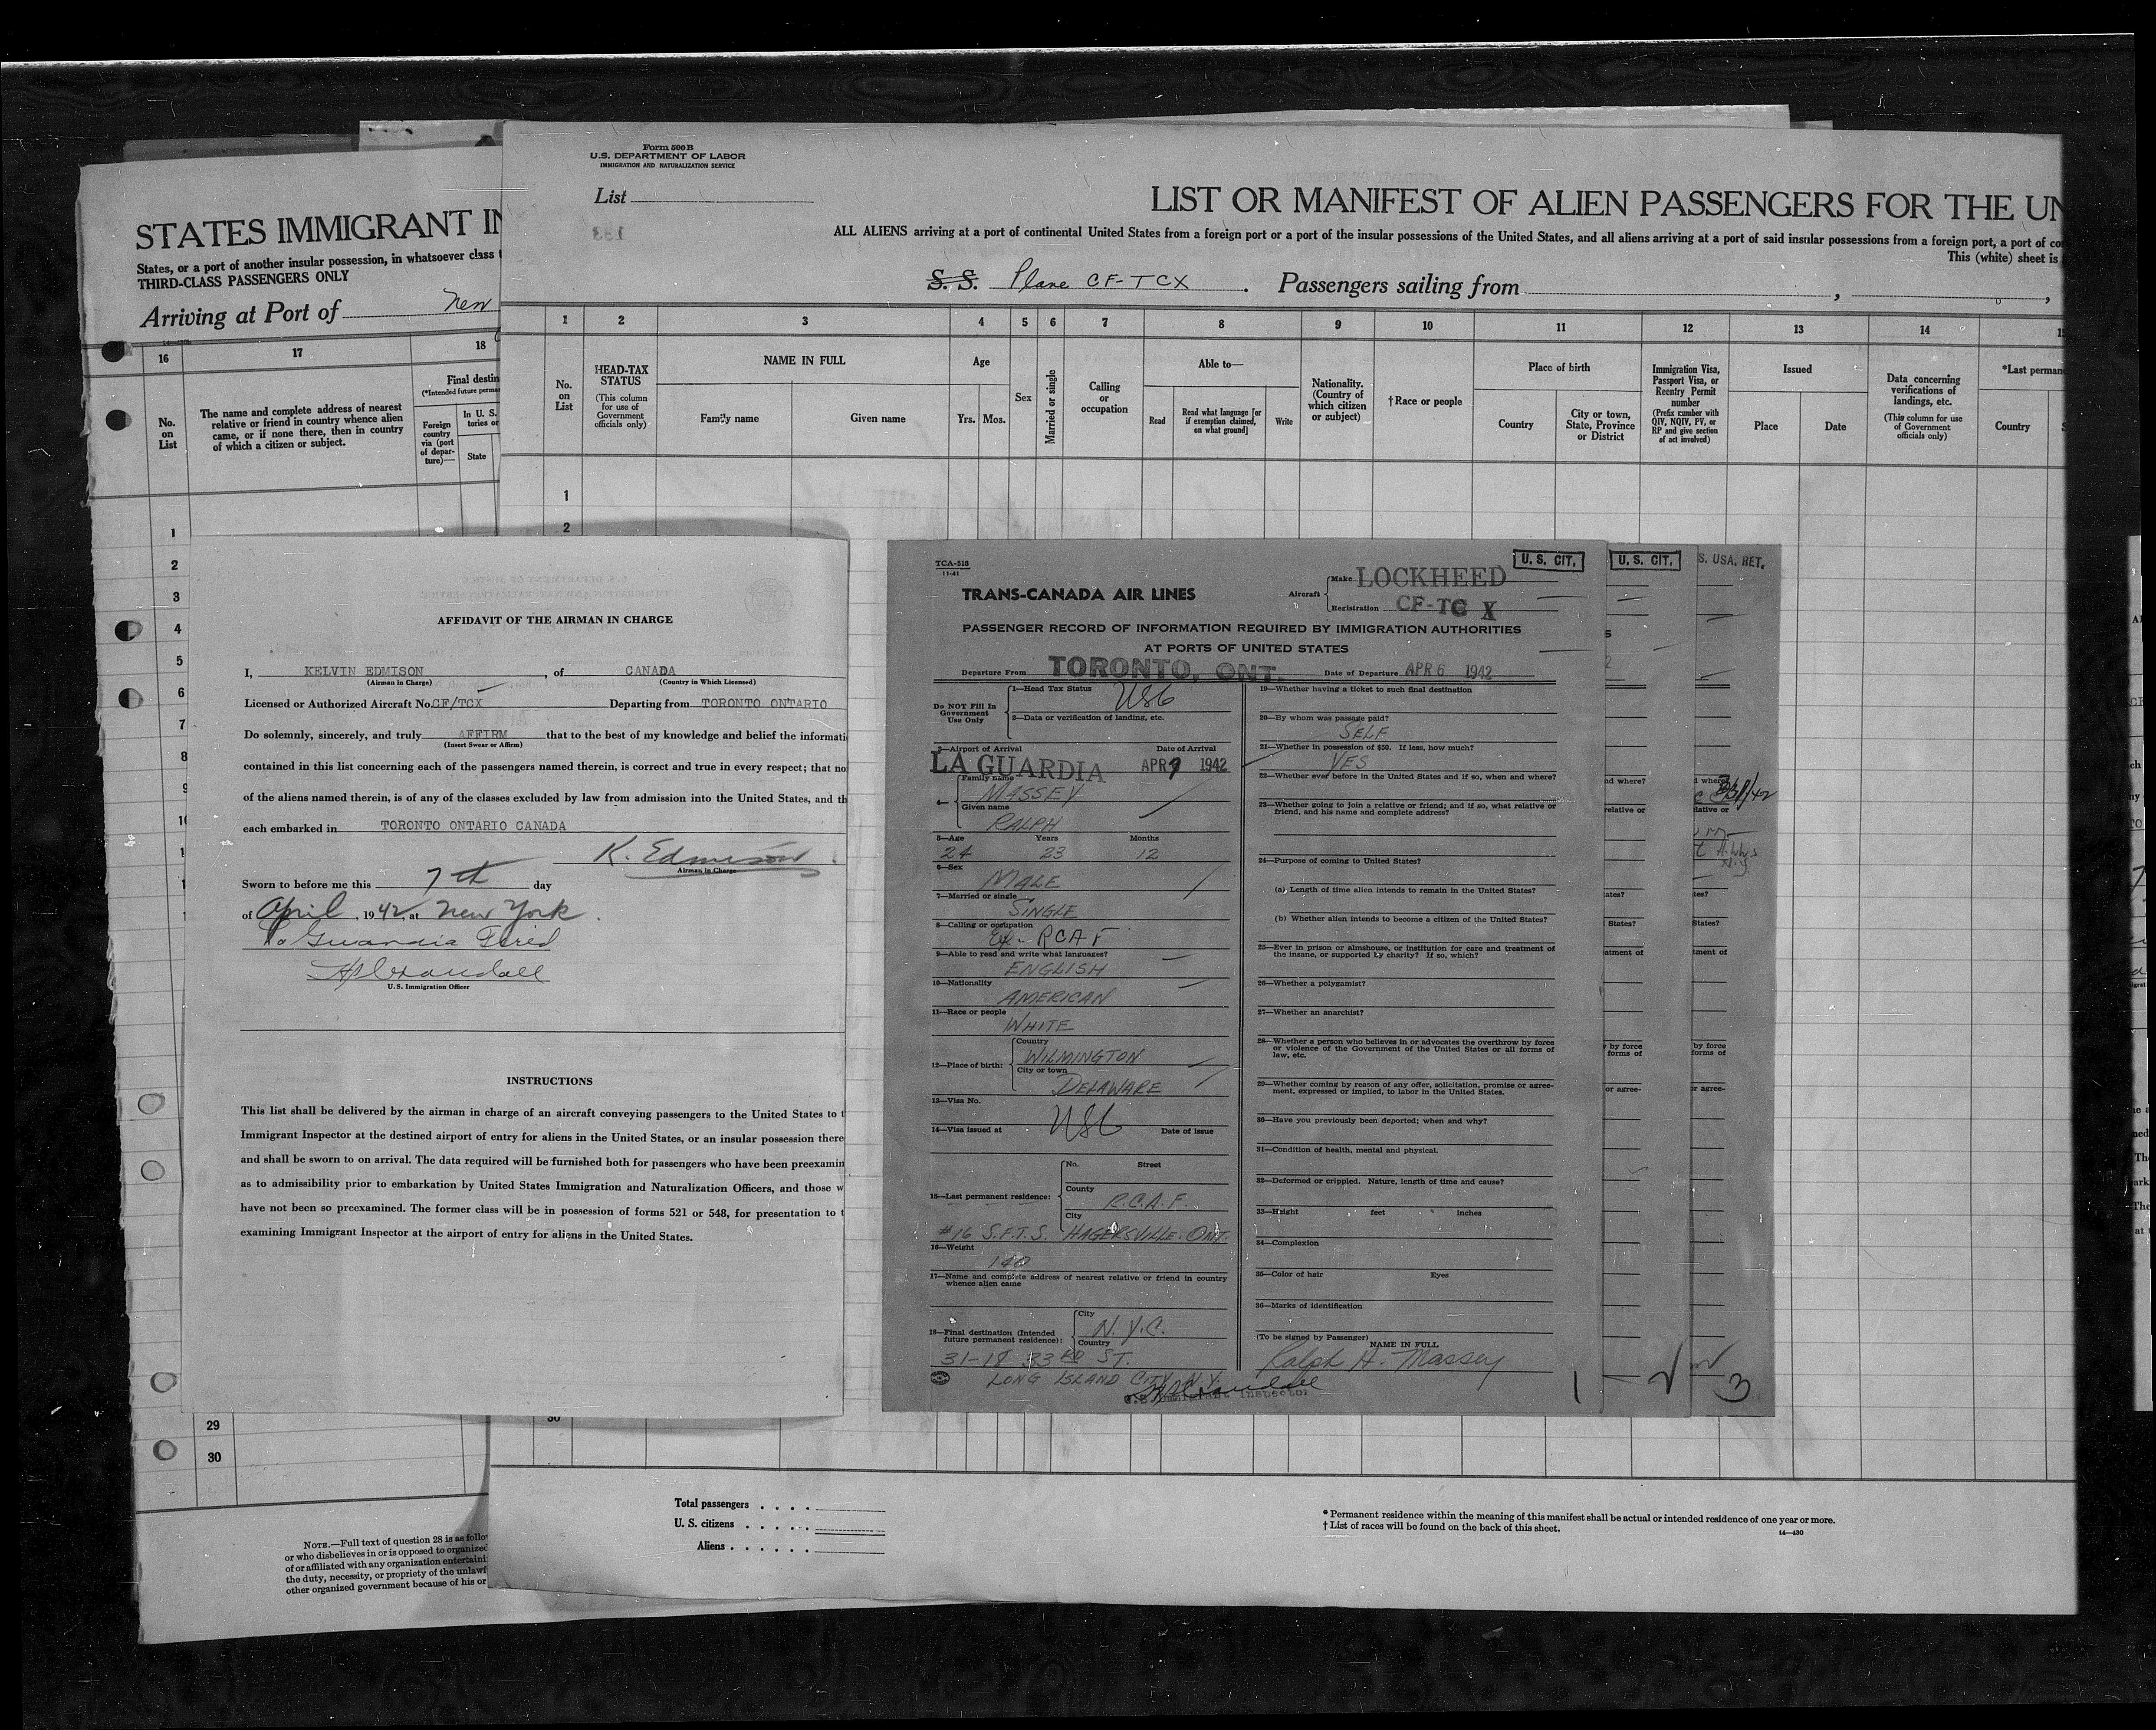 STATES IMMIGRANT IN
States, or a port of another insular possession, in whatsoever class t
THIRD-CLASS PASSENGERS ONLY
Arriving at Port of New
16
17
18
No. on List
The name and complete address of nearest
relative or friend in country whence alien
came, or if none there, then in country
of which a citizen or subject.
Final destin
(*Intended future perma
Foreign
country
via (port
of depar-
ture)—
In U. S.
tories or
State
1
2
3
4
5
6
7
8
9
29
30
NOTE.—Full text of question 28 is as follo
or who disbelieves in or is opposed to organized
of or affiliated with any organization entertaini
the duty, necessity, or propriety of the unlawf
other organized government because of his or
Form 500 B
U.S. DEPARTMENT OF LABOR
IMMIGRATION AND NATURALIZATION SERVICE
List
LIST OR MANIFEST OF ALIEN PASSENGERS FOR THE UN
ALL ALIENS arriving at a port of continental United States from a foreign port or a port of the insular possessions of the United States, and all aliens arriving at a port of said insular possessions from a foreign port, a port of co
This (white) sheet is
S. S. Plane CF-TCX . Passengers sailing from , ,
1 2 3 4 5 6 7 8 9 10 11 12 13 14
No. on List
HEAD-TAX STATUS
(This column for use of Government officials only)
NAME IN FULL
Family name
Given name
Age
Yrs. Mos.
Sex
Married or single
Calling or occupation
Able to—
Read
Read what language [or if exemption claimed, on what ground]
Write
Nationality. (Country of which citizen or subject)
†Race or people
Place of birth
Country
City or town, State, Province or District
Immigration Visa, Passport Visa, or Reentry Permit number
(Prefix number with QIV, NQIV, PV, or RP and give section of act involved)
Issued
Place
Date
Data concerning verifications of landings, etc.
(This column for use of Government officials only)
*Last perman
Country
1
2
30
Total passengers . . . .
U. S. citizens . . . . .
Aliens . . . . . .
* Permanent residence within the meaning of this manifest shall be actual or intended residence of one year or more.
† List of races will be found on the back of this sheet.
14—430
AFFIDAVIT OF THE AIRMAN IN CHARGE
I, KELVIN EDMISON , of CANADA
(Airman in Charge) (Country in Which Licensed)
Licensed or Authorized Aircraft No. CF/TCX Departing from TORONTO ONTARIO
Do solemnly, sincerely, and truly AFFIRM that to the best of my knowledge and belief the informati
(Insert Swear or Affirm)
contained in this list concerning each of the passengers named therein, is correct and true in every respect; that no
of the aliens named therein, is of any of the classes excluded by law from admission into the United States, and th
each embarked in TORONTO ONTARIO CANADA
K. Edmison
Airman in Charge
Sworn to before me this 7th day
of April , 1942, at New York.
La Guardia
U.S. Immigration Officer
INSTRUCTIONS
This list shall be delivered by the airman in charge of an aircraft conveying passengers to the United States to t
Immigrant Inspector at the destined airport of entry for aliens in the United States, or an insular possession there
and shall be sworn to on arrival. The data required will be furnished both for passengers who have been preexamin
as to admissibility prior to embarkation by United States Immigration and Naturalization Officers, and those w
have not been so preexamined. The former class will be in possession of forms 521 or 548, for presentation to t
examining Immigrant Inspector at the airport of entry for aliens in the United States.
TCA-518
11-41
U. S. CIT.
TRANS-CANADA AIR LINES
Aircraft
Make LOCKHEED
Registration CF-TC X
PASSENGER RECORD OF INFORMATION REQUIRED BY IMMIGRATION AUTHORITIES
AT PORTS OF UNITED STATES
Departure From TORONTO, ONT. Date of Departure APR 6 1942
Do NOT Fill In
Government
Use Only
1—Head Tax Status USC
2—Data or verification of landing, etc.
3—Airport of Arrival Date of Arrival
LA GUARDIA APR 7 1942
4—
Family name
MASSEY
Given name
RALPH
5—Age Years Months
24 23 12
6—Sex
MALE
7—Married or single
SINGLE
8—Calling or occupation
Ex- RCAF
9—Able to read and write what languages?
ENGLISH
10—Nationality
AMERICAN
11—Race or people
WHITE
12—Place of birth:
Country
WILMINGTON
City or town
DELAWARE
13—Visa No.
USC
14—Visa issued at Date of issue
15—Last permanent residence:
No. Street
County
R.C.A.F.
City
#16 S.F.T.S. HAGERSVILLE. ONT.
16—Weight
140
17—Name and complete address of nearest relative or friend in country
whence alien came
18—Final destination (Intended
future permanent residence):
City
N.Y.C.
Country
31-18 33RD ST.
LONG ISLAND CITY N.Y.
19—Whether having a ticket to such final destination
20—By whom was passage paid?
SELF
21—Whether in possession of $50. If less, how much?
YES
22—Whether ever before in the United States and if so, when and where?
23—Whether going to join a relative or friend; and if so, what relative or
friend, and his name and complete address?
24—Purpose of coming to United States?
(a) Length of time alien intends to remain in the United States?
(b) Whether alien intends to become a citizen of the United States?
25—Ever in prison or almshouse, or institution for care and treatment of
the insane, or supported by charity? If so, which?
26—Whether a polygamist?
27—Whether an anarchist?
28—Whether a person who believes in or advocates the overthrow by force
or violence of the Government of the United States or all forms of
law, etc.
29—Whether coming by reason of any offer, solicitation, promise or agree-
ment, expressed or implied, to labor in the United States.
30—Have you previously been deported; when and why?
31—Condition of health, mental and physical.
32—Deformed or crippled. Nature, length of time and cause?
33—Height feet inches
34—Complexion
35—Color of hair Eyes
36—Marks of identification
(To be signed by Passenger)
NAME IN FULL
Ralph H. Massey
U.S. Immigrant Inspector
1
U. S. CIT.
nd where?
relative or
tates?
States?
atment of
by force
forms of
or agree-
2
S. USA. RET.
3/31/42
lative or
tes?
States?
tment of
by force
forms of
r agree-
3